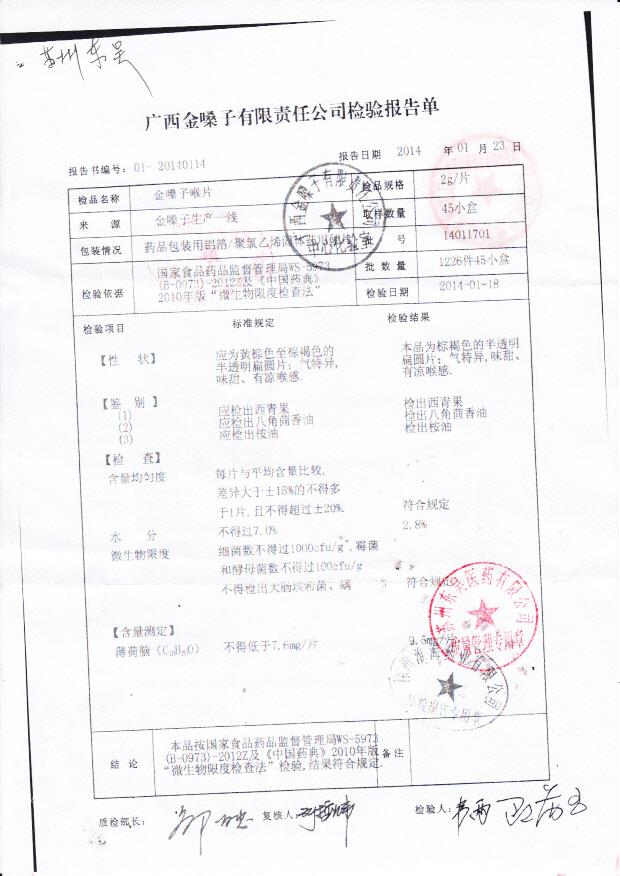 苏州东吴
广西金嗓子有限责任公司检验报告单
报告书编号: 01- 20140114 报告日期 2014 年 01 月 23 日
检品名称 金嗓子喉片 检品规格 2g/片
来 源 金嗓子生产一线 取样数量 45小盒
包装情况 药品包装用铝箔/聚氯乙烯 批 号 14011701
检验依据 国家食品药品监督管理局WS-5973 批 数 量 1226件45小盒
(B-0973)-2012Z及《中国药典》
2010年版“微生物限度检查法” 检验日期 2014-01-18
检验项目 标准规定 检验结果
【性 状】 应为黄棕色至棕褐色的 本品为棕褐色的半透明
半透明扁圆片; 气特异, 扁圆片; 气特异, 味甜、
味甜、有凉喉感. 有凉喉感.
【鉴 别】
(1) 应检出西青果 检出西青果
(2) 应检出八角茴香油 检出八角茴香油
(3) 应检出桉油 检出桉油
【检 查】
含量均匀度 每片与平均含量比较,
差异大于±15%的不得多
于1片, 且不得超过±20%. 符合规定
水 分 不得过7.0% 2.8%
微生物限度 细菌数不得过1000cfu/g, 霉菌
和酵母菌数不得过100cfu/g
不得检出大肠埃希菌、螨 符合规定
【含量测定】
薄荷脑 (C₁₀H₂₀O) 不得低于7.6mg/片 9.5mg/片
结 论 本品按国家食品药品监督管理局WS-5973 备注
(B-0973)-2012Z及《中国药典》2010年版
“微生物限度检查法”检验, 结果符合规定.
质检部长: 复核人: 检验人:
广西金嗓子有限责任公司
中心化验室
苏州东吴医药有限公司
质量管理专用章